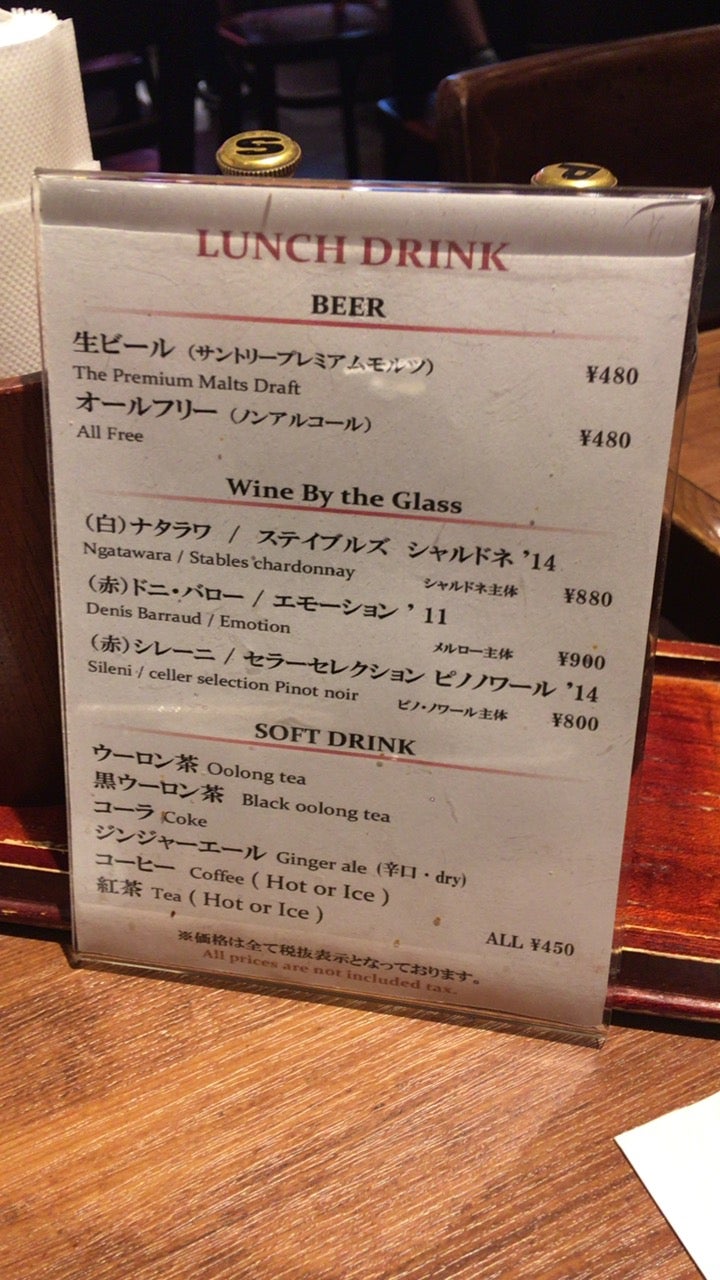 S
P
LUNCH DRINK
BEER
生ビール (サントリープレミアムモルツ)
The Premium Malts Draft ¥480
オールフリー (ノンアルコール)
All Free ¥480
Wine By the Glass
(白)ナタラワ / ステイブルズ シャルドネ '14
Ngatawara / Stables chardonnay シャルドネ主体 ¥880
(赤)ドニ・バロー / エモーション ' 11
Denis Barraud / Emotion メルロー主体 ¥900
(赤)シレーニ / セラーセレクション ピノノワール '14
Sileni / celler selection Pinot noir ピノ・ノワール主体 ¥800
SOFT DRINK
ウーロン茶 Oolong tea
黒ウーロン茶 Black oolong tea
コーラ Coke
ジンジャーエール Ginger ale (辛口・dry)
コーヒー Coffee ( Hot or Ice )
紅茶 Tea ( Hot or Ice )
ALL ¥450
※価格は全て税抜表示となっております。
All prices are not included tax.